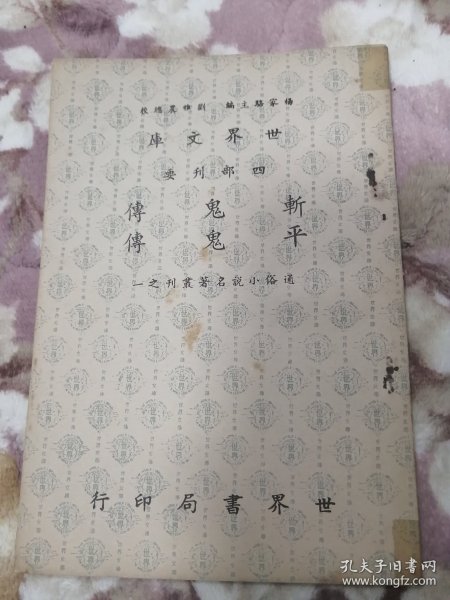 楊家駱主編　劉雅農總校
世界文庫
四部刊要
斬鬼傳
平鬼傳
通俗小說名著叢刊之一
世界書局印行
孔夫子旧书网
www.kongfz.com